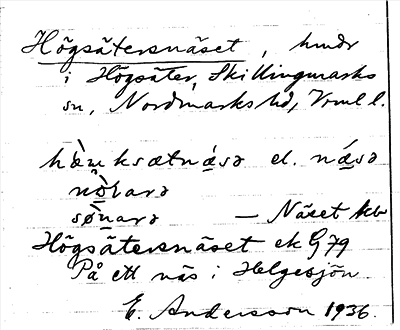 Högsätersnäset, hmdr
i Högsäter, Skillingmarks
sn, Nordmarks hd, Vrml l.
hæ̀ɯksætnǽsə el. nǽsə
nǫ̀larə
sǿnarə — Näset kbr
Högsätersnäset ek G79
På ett näs i Helgesjön
E. Andersson 1936.